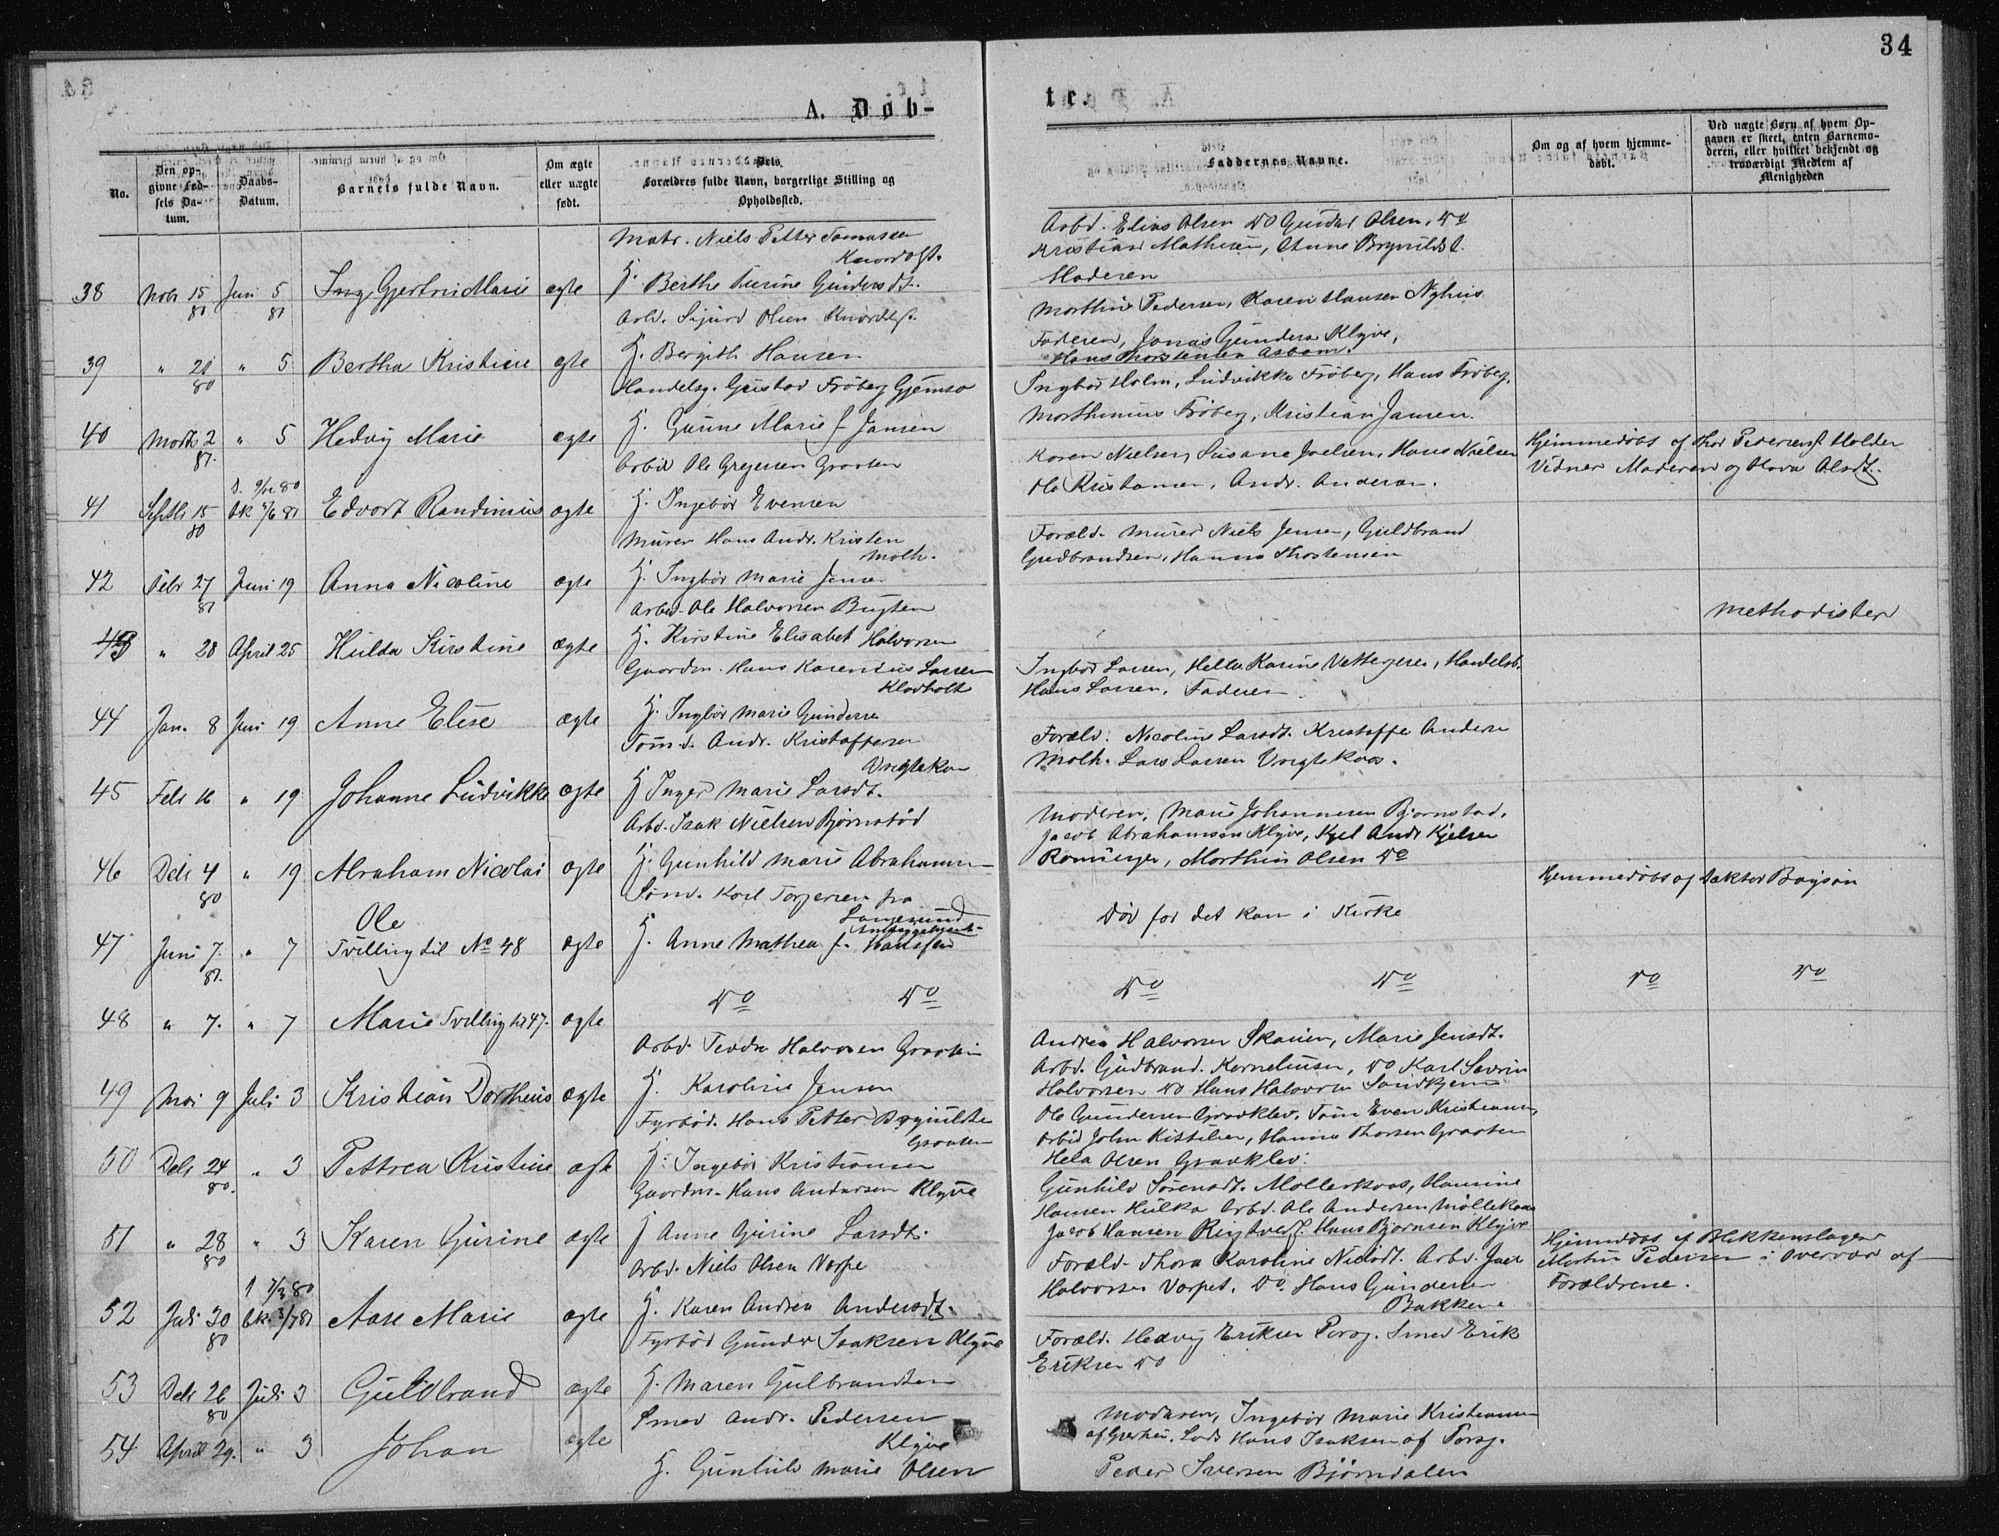 34
A. Døb-
te.
No.
Den op-
givne Fød-
sels Da-
tum.
Daabs-
Datum.
Barnets fulde Navn.
Om ægte
eller uægte
født.
Forældres fulde Navn, borgerlige Stilling og
Opholdssted.
Faddernes Navne.
Om og af hvem hjemme-
døbt.
Ved uægte Børn af hvem Op-
gaven er skeet, enten Barnemo-
deren, eller hvilket bekjendt og
troværdigt Medlem af
Menigheden
Matr. Niels Petter Tomassen
38 Nobr 15 81 Juni 5 81 Marie ægte
H. Berthe Gundersdt.
Arbd. Elias Olsen Do Gunder Olsen, Do
Kristian Mathisen, Anne Brynildsd.
Moderen
Arbd. Sigurd Olsen
39 " 21 80 " 5 Bertha Kristine ægte
H. Bergith Hansen
Morthine Pedersen, Karen Hansen Nyhus
Faderen, Jonas Gundersen Klyve,
Hans Thorstensen
Handelsg. Gustav Frøberg Gjemsø
40 Morts 2 81. " 5 Hedvig Marie ægte
H. Gurine Marie f. Jansen
Ingbør Holm, Ludvikke Frøberg, Hans Frøberg,
Morthinius Frøberg, Kristian Jansen.
Arbd Ole Gregersen Graaten
D. 9/12 80
41 Septbr 15 80 Bk 5/6 81 Edvart Randinius ægte
H. Ingebør Evensen
Karen Nielsen, Susane Joelsen, Hans Nielsen
Ole Kristansen, Andr. Andersen.
Hjemmedøbt af Thor Pedersen Holder
Vidner Moderen og Olsdt.
Murer Hans Andr. Kristen
Molh.
42 Febr 27 81 Juni 19 Anna Nicoline ægte
H. Ingbør Marie Jensen
Foræld. Murer Niels Jensen, Guldbrand
Gudbrandsen, Hanna Thostensen
Arbd. Ole Halvorsen Bugten
43 " 28 April 25 Hulda Kirstine ægte
H. Kirstine Elisabet Halvorsen
Methodister
Gaardm. Hans Karenius Larsen
Klovholt
44 Jan. 8 Juni 19 Anne Elise ægte
H. Ingbør Marie Gundersen
Ingbør Larsen, Helle Karine Vettergren, Handelsb.
Hans Larsen, Faderen.
Tømd. Andr. Kristoffersen
45 Feb 16 " 19 Johanne Ludvikke ægte
H Inger Marie Larsdt.
Foræld. Nicoline Larsdt. Kristoffer Andersen
Molh. Lars Larsen
Arbd. Isak Nielsen Bjørnstød
46 Debr 4 80 " 19 Abraham Nicolai ægte
H. Gunhild Marie Abrahamsen
Moderen, Marie Johannesen Bjørnstad,
Jacob Abrahamsen Klyve, Kjel Andr Kjelsen
Morthin Olsen Do
Hjemmedøbt af Doktor Boyesen
Sømd. Karl Torgersen fra
Langesund
Ole
47 Juni 7. 81. " 7 Tvilling til No 48 ægte
H. Anne Mathea f. Hansen
Død før det kom i Kirke
48 " 7. " 7 Marie Tvilling til 47. ægte
Do Do
Do Do Do Do
Arbd. Halvorsen Graaten
49 Mai 9 Juli 3 Kristian Dortheus ægte
H. Karoline Jensen
Andrea Halvorsen Skauen, Marie Jensdt.
Arbd. Gudbrand. Korneliusen, Do Karl Severin
Halvorsen Do Hans Halvorsen Sandkjern
Fyrbød. Hans Petter Brynildsen
Graaten
50 Debr 24 80. " 3 Pettrea Kristine ægte
H. Ingebør Kristiansen
Ole Gundersen Graaklev, Tøm Even Kristiansen,
Arbd John Kittilsen, Hanna Thorsen Graaten
Hela Olsen Graaklev.
Gaardm. Hans Andersen Klyve
51 " 28 80 " 3 Karen Gurine ægte
H Anne Gurine Larsdt.
Gunhild Sørensdt. Møllerkaas, Hansine
Hansen Hulka Arbd. Ole Andersen Møllekaas
Jacob Hansen Hans Bjørnsen Klyve
Arbd. Niels Olsen Vorpe
52 Juli 30 80 Bk. 3/7 81 Aase Marie ægte
H. Karen Andrea Andersdt.
Foræld. Thora Karoline Nilsdt. Arbd. Joel
Halvorsen Vorpet. Do. Hans Gundersen
Bakken
Hjemmedøbt af Blikkenslager
Morten Pedersen i Overvær af
Forældrene.
Fyrbød Gunder Isaksen Klyve
53 Debr 26 80 Juli 3 Guldbrand ægte
H. Maren Gulbrandsen
Foræld. Hedvig Eriksen Porsg. Smed Erik
Eriksen Do
Smed Andr. Pedersen
Klyve
54 April 29. " 3 Johan ægte
H. Gunhild Marie Olsen
Moderen, Ingebør Marie Kristiansen
af Gjerhei, Lods Hans Isaksen af Porsg.
Peder Iversen Bjørndalen